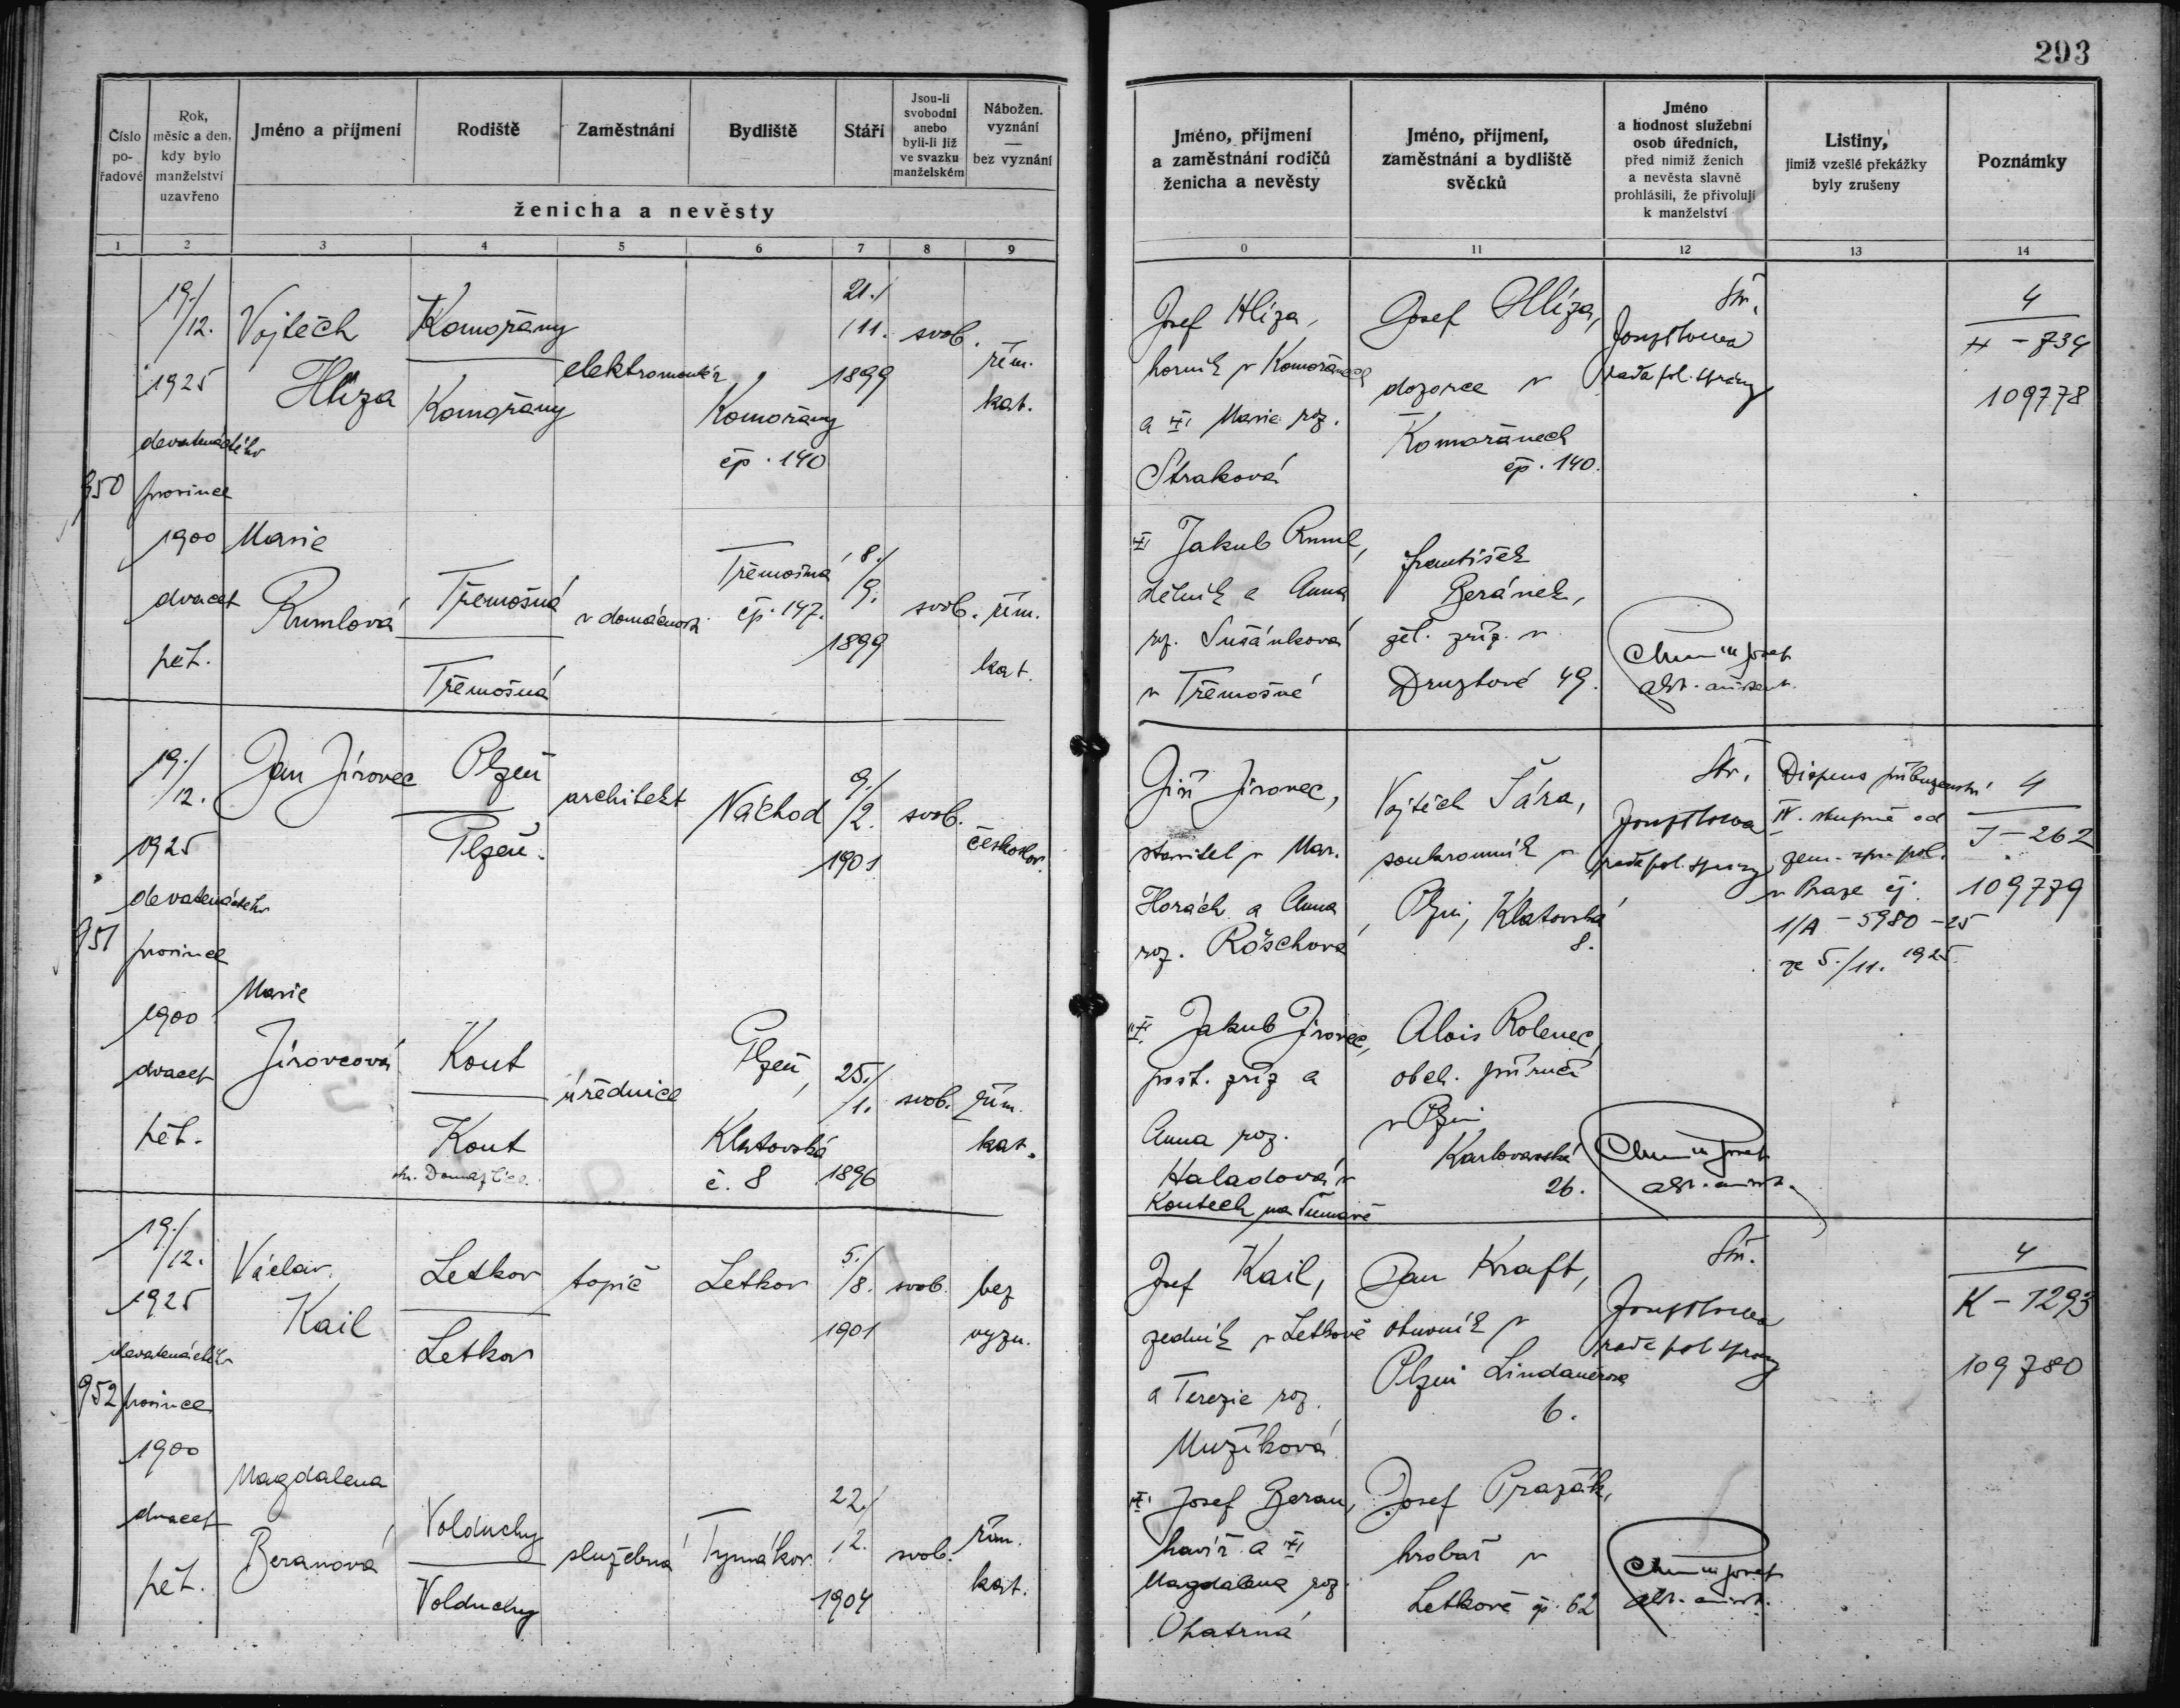 293
Číslo
po-
řadové
Rok,
měsíc a den,
kdy bylo
manželství
uzavřeno
Jméno a příjmení
Rodiště
Zaměstnání
Bydliště
Stáří
Jsou-li
svobodni
anebo
byli-li již
ve svazku
manželském
Nábožen.
vyznání
—
bez vyznání
ženicha a nevěsty
1 2 3 4 5 6 7 8 9
Jméno, příjmení
a zaměstnání rodičů
ženicha a nevěsty
Jméno, příjmení,
zaměstnání a bydliště
svědků
Jméno
a hodnost služební
osob úředních,
před nimiž ženich
a nevěsta slavně
prohlásili, že přivolují
k manželství
Listiny,
jimiž vzešlé překážky
byly zrušeny
Poznámky
0 11 12 13 14
950
19./
/12.
1925
devatenáctého
prosince
1900
dvacet
pět.
Vojtěch
Hlíza
Komořany
Komořany
elektromontér
Komořany
čp. 140
21./
/11.
1899
svob.
řím.
kat.
Josef Hlíza,
horník v Komořanech
a Marie roz.
Straková
Josef Hlíza,
dozorce v
Komořanech
čp. 140.
rada pol. správy
4
H - 734
109778
Marie
Rumlová
Třemošná
Třemošná
v domácnosti
Třemošná
čp. 147.
8./
9.
1899
svob.
řím.
kat.
Jakub Ruml,
dělník a Anna
roz. Sušánková
v Třemošné
František
Beránek,
žel. zříz. v
Druztové 49.
951
19./
/12.
1925
devatenáctého
prosince
1900
dvacet
pět.
Jan Jírovec
Plzeň
Plzeň.
architekt
Náchod
9./
/2.
1901
svob.
českoslov.
Jiří Jírovec,
stavitel v Mar.
Horách a Anna
roz. Röschová
Vojtěch Šára,
soukromník v
Plzni, Klatovská
8.
rada pol. správy
Dispens příbuzenství
IV. stupně od
zem. spr. pol.
v Praze čj.
1/A - 5980 - 25
ze 5./11. 1925
4
J - 262
109779
Marie
Jírovcová
Kout
Kout
okr. Domažlice.
úřednice
Plzeň,
Klatovská
č. 8
25./
/1.
1896
svob.
řím.
kat.
Jakub Jírovec,
post. zříz a
Anna roz.
Haladová v
Koutech na Šumavě
Alois Rolenec,
obch. příručí
v Plzni
Karlovarská
26.
952
19./
/12.
1925
devatenáctého
prosince
1900
dvacet
pět.
Václav
Kail
Letkov
Letkov
topič
Letkov
5./
/8.
1901
svob.
bez
vyzn.
Josef Kail,
zedník v Letkově
a Terezie roz.
Mužíková
Jan Kraft,
obuvník v
Plzni Lindauerova
6.
rada pol. správy
4
K - 1293
109780
Magdalena
Beranová
Volduchy
Volduchy
služebná
Tymákov
22./
12.
1904
svob.
řím.
kat.
Josef Beran,
havíř a
Magdalena roz.
Opatrná
Josef Pražák,
hrobař v
Letkově čp. 62